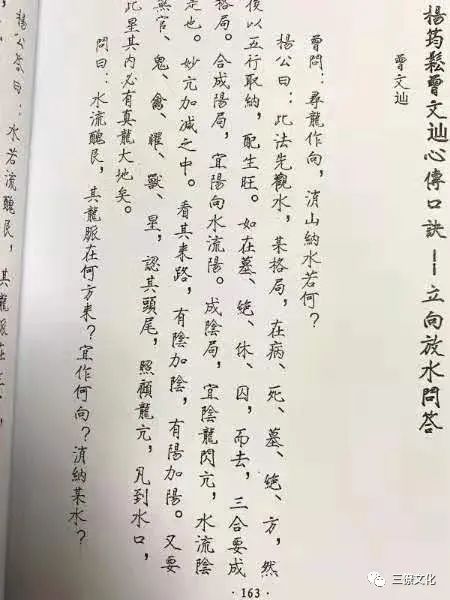 楊筠鬆曾文辿心傳口訣──立向放水問答
曾文辿
曾問：尋龍作向，消山納水若何？
楊公曰：此法先觀水，某格局，在病、死、墓、絕、方，然
後以五行取納，配生旺。如在墓、絕、休、囚，而去，三合要成
格局。合成陽局，宜陽向水流陽。成陰局，宜陰龍閃亢，水流陰
是也。妙亢加減之中。看其來路，有陰加陰，有陽加陽。又要
無官、鬼、禽、曜、獸、星，認其頭尾，照顧龍亢，凡到水口，
此星其內必有真龍大地矣。
問曰：水流醜艮，其龍脈在何方來？宜作何向？消納某水？
楊公答曰：水若流醜艮，其龍
·163·
三僚文化